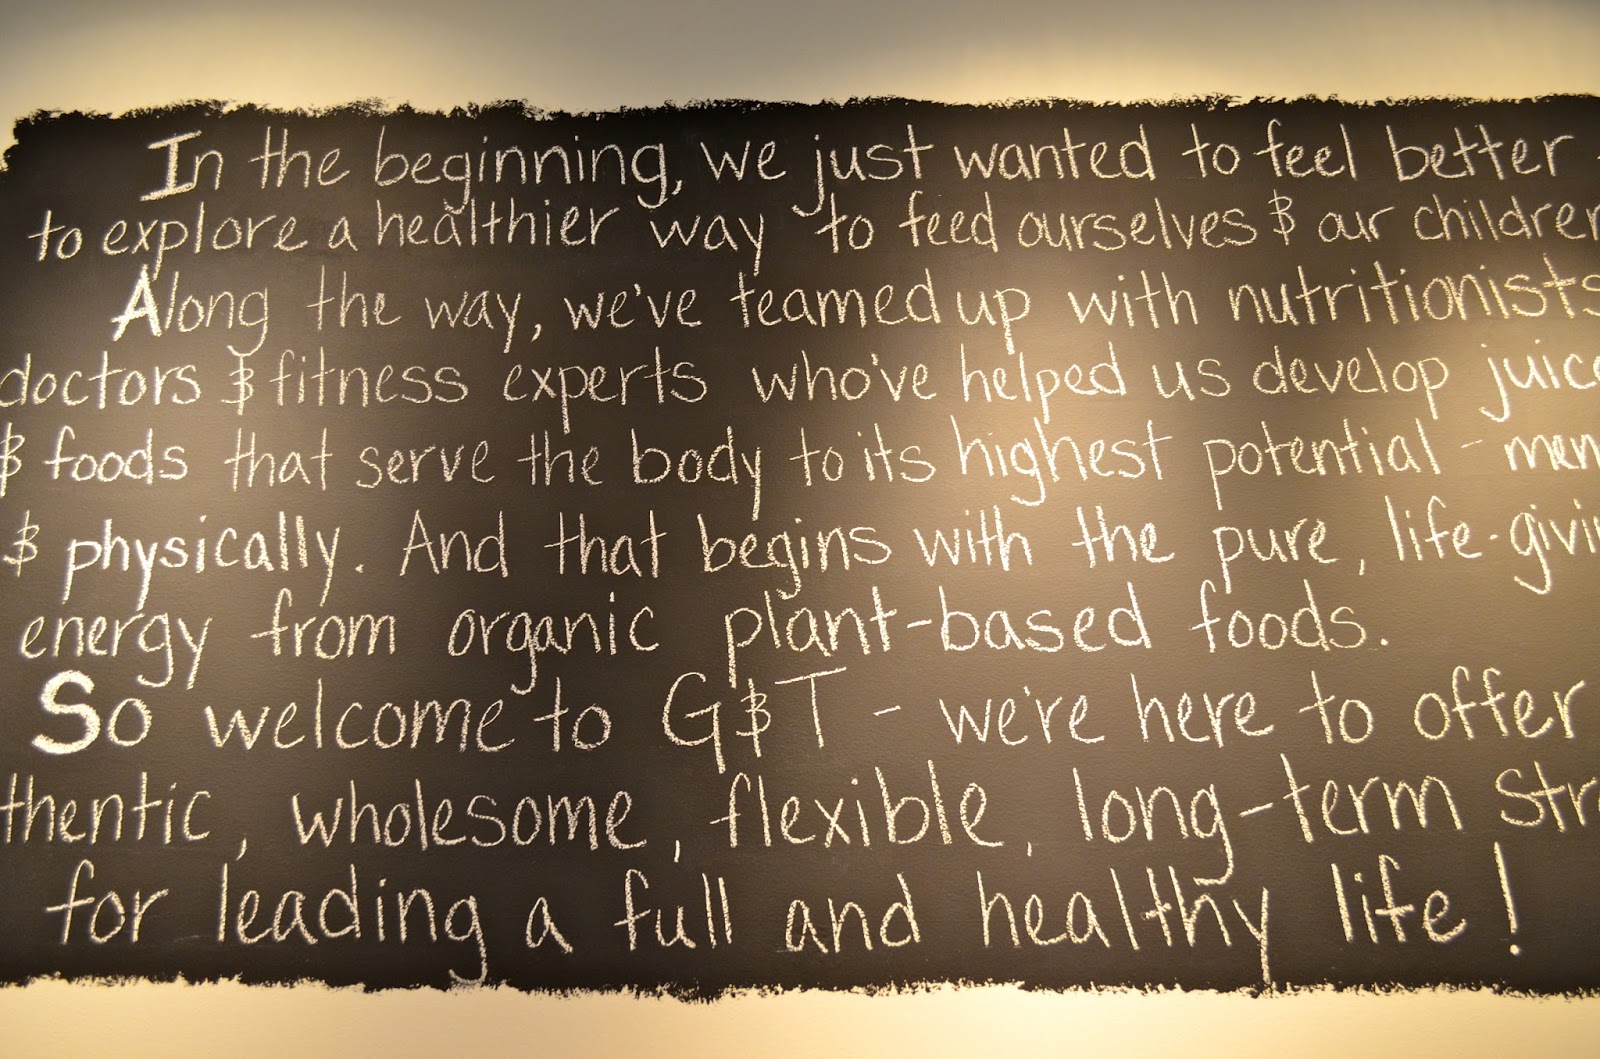 In the beginning, we just wanted to feel better -
to explore a healthier way to feed ourselves & our children
Along the way, we've teamed up with nutritionists
doctors & fitness experts who've helped us develop juice
& foods that serve the body to its highest potential - men
& physically. And that begins with the pure, life-givin
energy from organic plant-based foods.
So welcome to G&T - we're here to offer
thentic, wholesome, flexible, long-term str
for leading a full and healthy life!